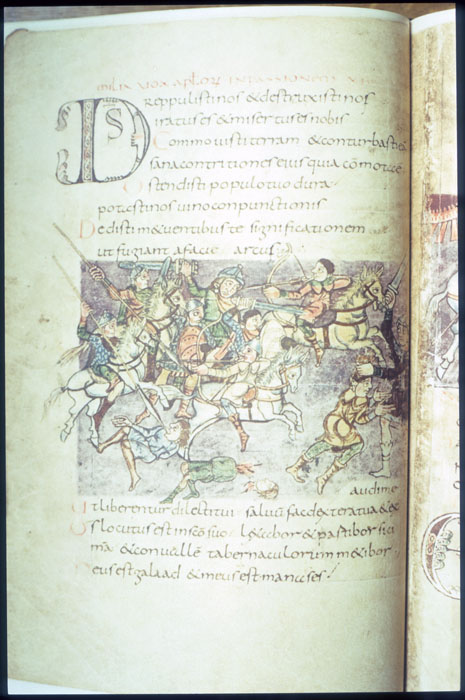 in passionem
DS reppulisti nos & destruxisti nos
iratus es & misertus es nobis
Commouisti terram & conturbasti
sana contritiones eius quia cōmota ē
Ostendisti populo tuo dura
potasti nos uino conpunctionis
Dedisti m&uentibus te significationem
ut fugiant a facie arcus
audi me
Ut liberentur dilecti tui saluū fac dextera tua & ex
Ds locutus est in sco suo l&abor & partibor sici
ma & conuallē tabernaculorum m&ibor
eus est galaad & meus est manasses